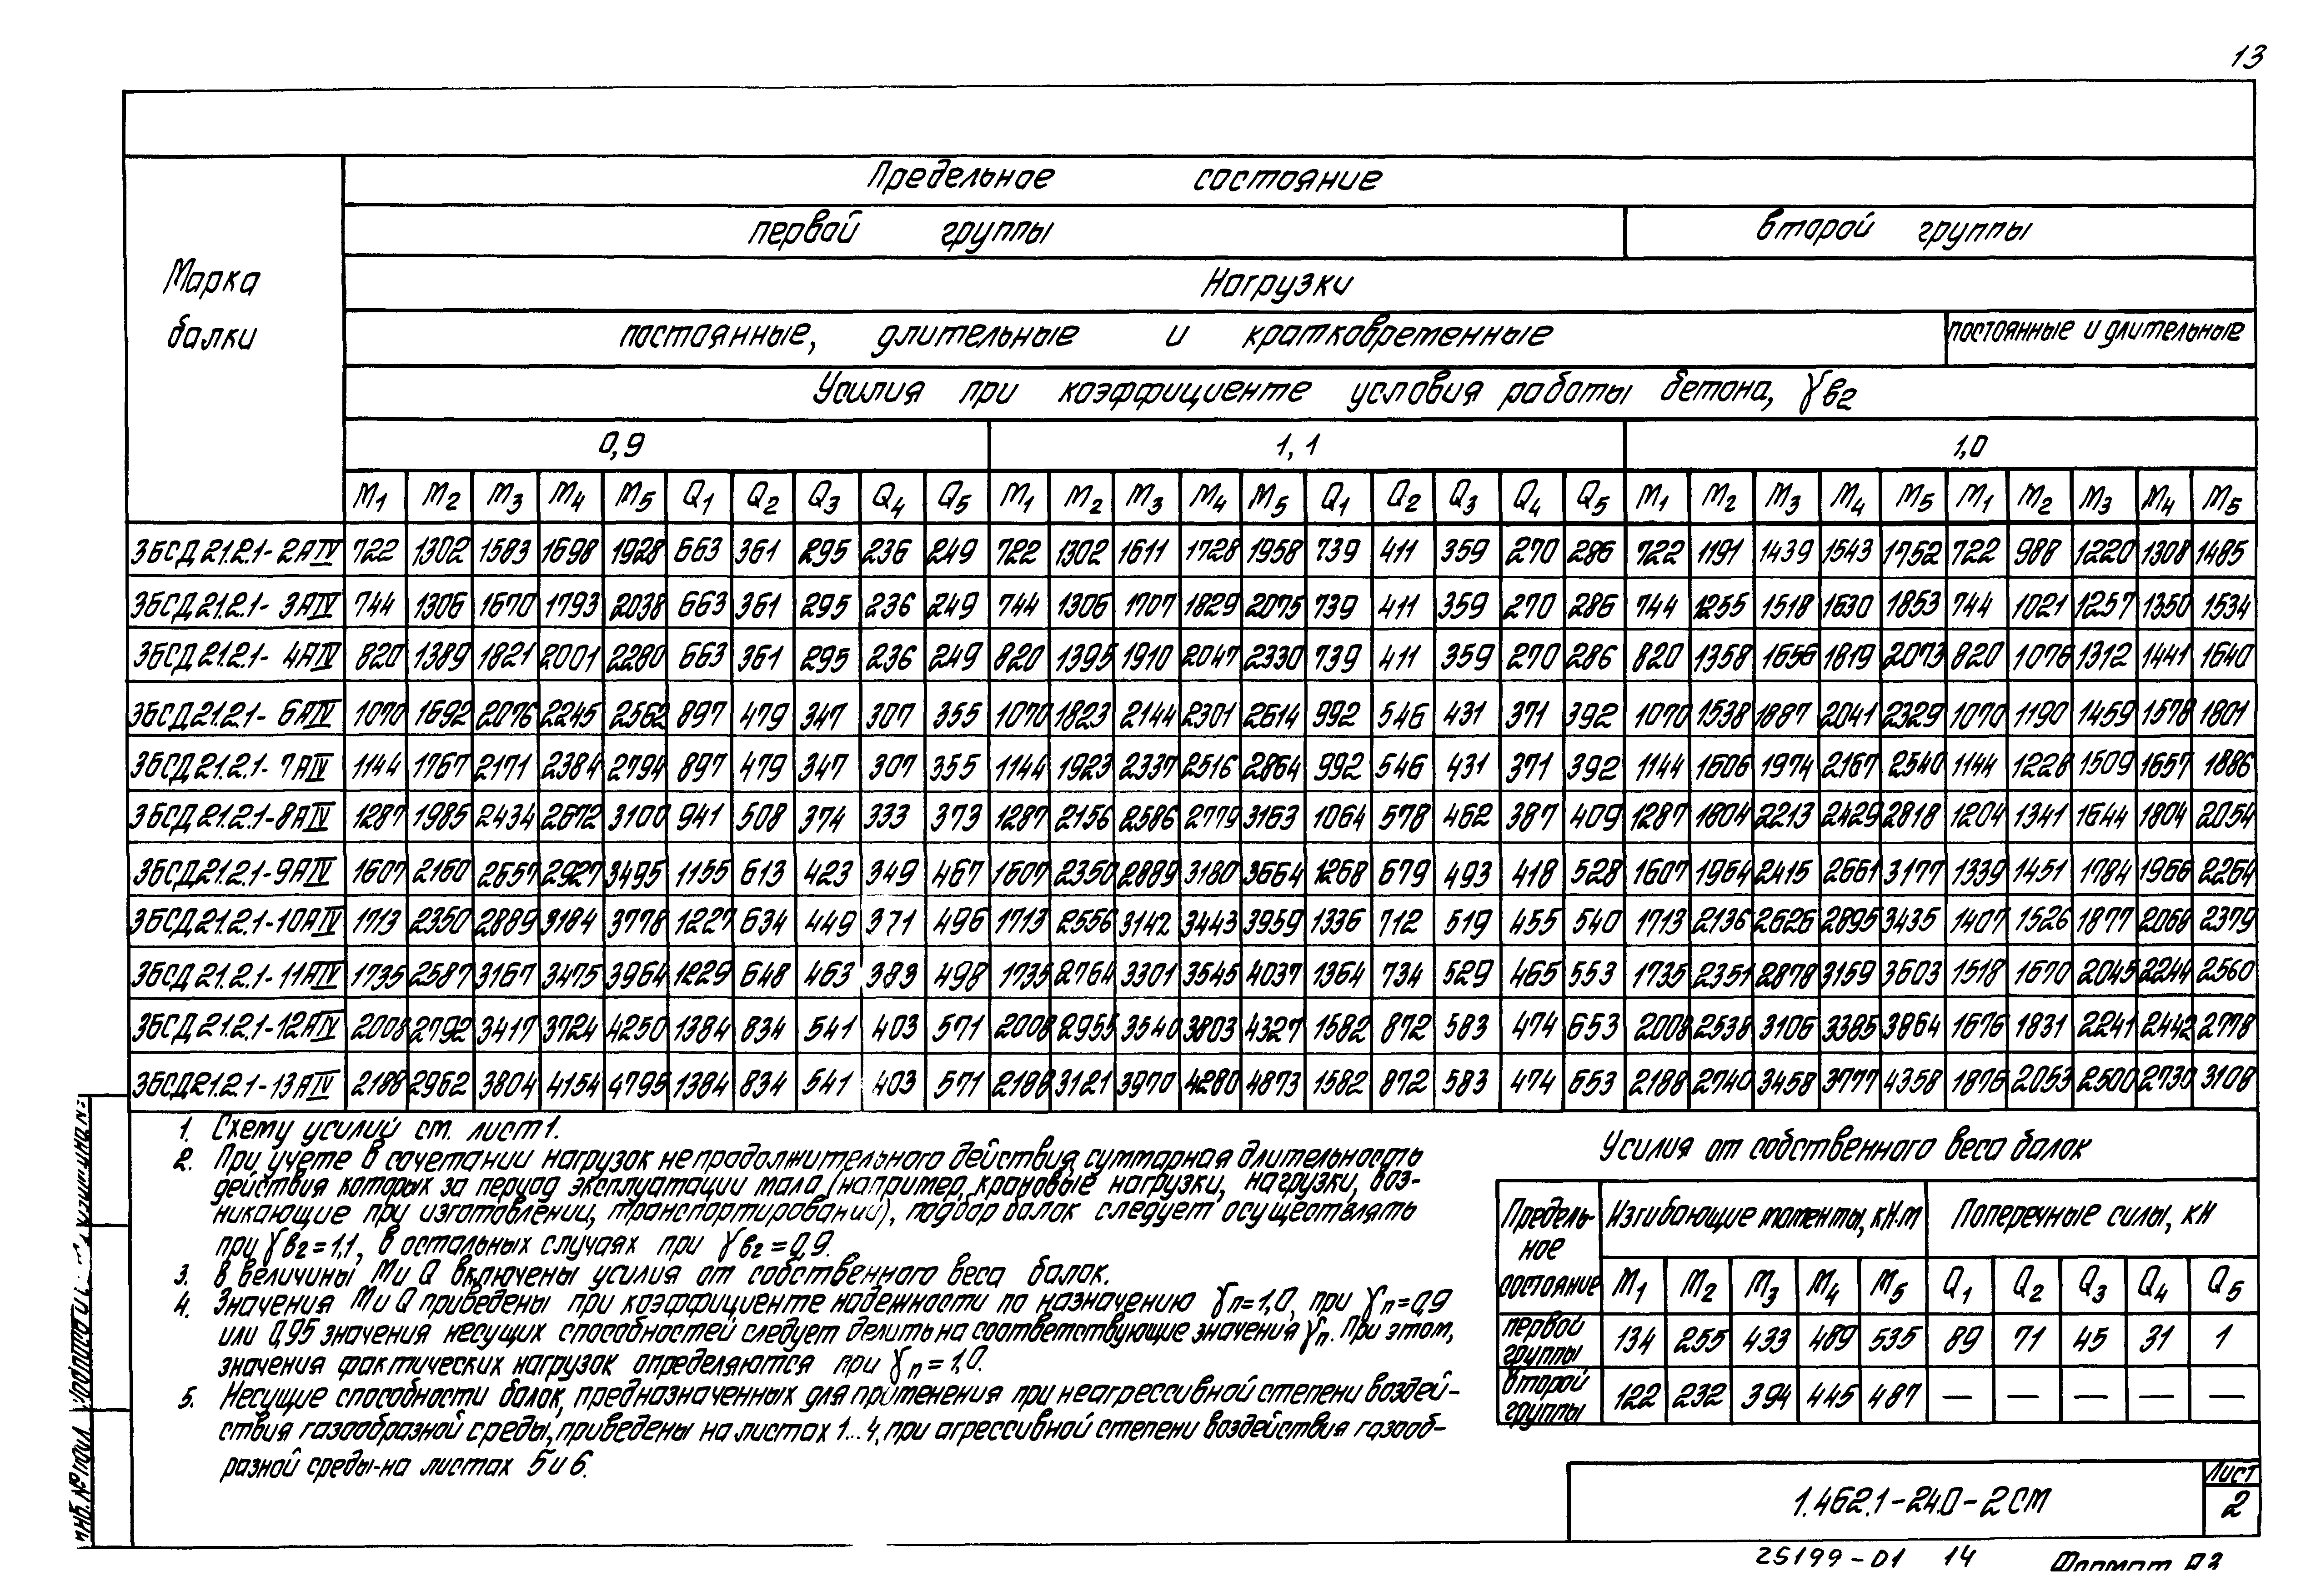 13
Предельное состояние
первой группы второй группы
Марка балки
Нагрузки
постоянные, длительные и кратковременные постоянные и длительные
Усилия при коэффициенте условия работы бетона, γв2
0,9 1,1 1,0
M1 M2 M3 M4 M5 Q1 Q2 Q3 Q4 Q5 M1 M2 M3 M4 M5 Q1 Q2 Q3 Q4 Q5 M1 M2 M3 M4 M5 M1 M2 M3 M4 M5
3БСД21.2.1-2АIV 722 1302 1583 1698 1928 663 361 295 236 249 722 1302 1611 1728 1958 739 411 359 270 286 722 1191 1439 1543 1752 722 988 1220 1308 1485
3БСД21.2.1-3АIV 744 1306 1670 1793 2038 663 361 295 236 249 744 1306 1707 1829 2075 739 411 359 270 286 744 1255 1518 1630 1853 744 1021 1257 1350 1534
3БСД21.2.1-4АIV 820 1389 1821 2001 2280 663 361 295 236 249 820 1395 1910 2047 2330 739 411 359 270 286 820 1358 1656 1819 2073 820 1076 1312 1441 1640
3БСД21.2.1-6АIV 1070 1692 2076 2245 2562 897 479 347 307 355 1070 1823 2144 2301 2614 992 546 431 371 392 1070 1538 1887 2041 2329 1070 1190 1459 1578 1801
3БСД21.2.1-7АIV 1144 1767 2171 2384 2794 897 479 347 307 355 1144 1923 2337 2516 2864 992 546 431 371 392 1144 1606 1974 2167 2540 1144 1228 1509 1657 1886
3БСД21.2.1-8АIV 1287 1985 2434 2672 3100 941 508 374 333 373 1287 2156 2586 2779 3163 1064 578 462 387 409 1287 1804 2213 2429 2818 1204 1341 1644 1804 2054
3БСД21.2.1-9АIV 1607 2160 2657 2927 3495 1155 613 423 349 467 1607 2350 2889 3180 3664 1268 679 493 418 528 1607 1964 2415 2661 3177 1339 1451 1784 1966 2264
3БСД21.2.1-10АIV 1713 2350 2889 3184 3778 1227 634 449 371 496 1713 2556 3142 3443 3959 1336 712 519 455 540 1713 2136 2626 2895 3435 1407 1526 1877 2068 2379
3БСД21.2.1-11АIV 1735 2587 3167 3475 3964 1229 648 463 383 498 1735 2764 3301 3545 4037 1364 734 529 465 553 1735 2351 2878 3159 3603 1518 1670 2045 2244 2560
3БСД21.2.1-12АIV 2008 2792 3417 3724 4250 1384 834 541 403 571 2008 2955 3540 3803 4327 1582 872 583 474 653 2008 2538 3106 3385 3864 1676 1831 2241 2442 2778
3БСД21.2.1-13АIV 2188 2962 3804 4154 4795 1384 834 541 403 571 2188 3121 3970 4280 4873 1582 872 583 474 653 2188 2740 3458 3777 4358 1876 2053 2500 2730 3108
1. Схему усилий см. лист 1.
2. При учете в сочетании нагрузок непродолжительного действия, суммарная длительность
действия которых за период эксплуатации мала (например, крановые нагрузки, нагрузки, воз-
никающие при изготовлении, транспортировании), подбор балок следует осуществлять
при γв2=1,1, в остальных случаях при γв2=0,9.
3. В величины M и Q включены усилия от собственного веса балок.
4. Значения M и Q приведены при коэффициенте надежности по назначению γn=1,0, при γn=0,9
или 0,95 значения несущих способностей следует делить на соответствующие значения γn. При этом,
значения фактических нагрузок определяются при γn=1,0.
5. Несущие способности балок, предназначенных для применения при неагрессивной степени воздей-
ствия газообразной среды, приведены на листах 1...4, при агрессивной степени воздействия газооб-
разной среды-на листах 5 и 6.
Усилия от собственного веса балок
Предель-ное состояние Изгибающие моменты, кН·м Поперечные силы, кН
M1 M2 M3 M4 M5 Q1 Q2 Q3 Q4 Q5
первой группы 134 255 433 489 535 89 71 45 31 1
второй группы 122 232 394 445 487 — — — — —
1.462.1-24.0-2СМ
Лист
2
25199-01 14
Формат А3
Инв. № подл.